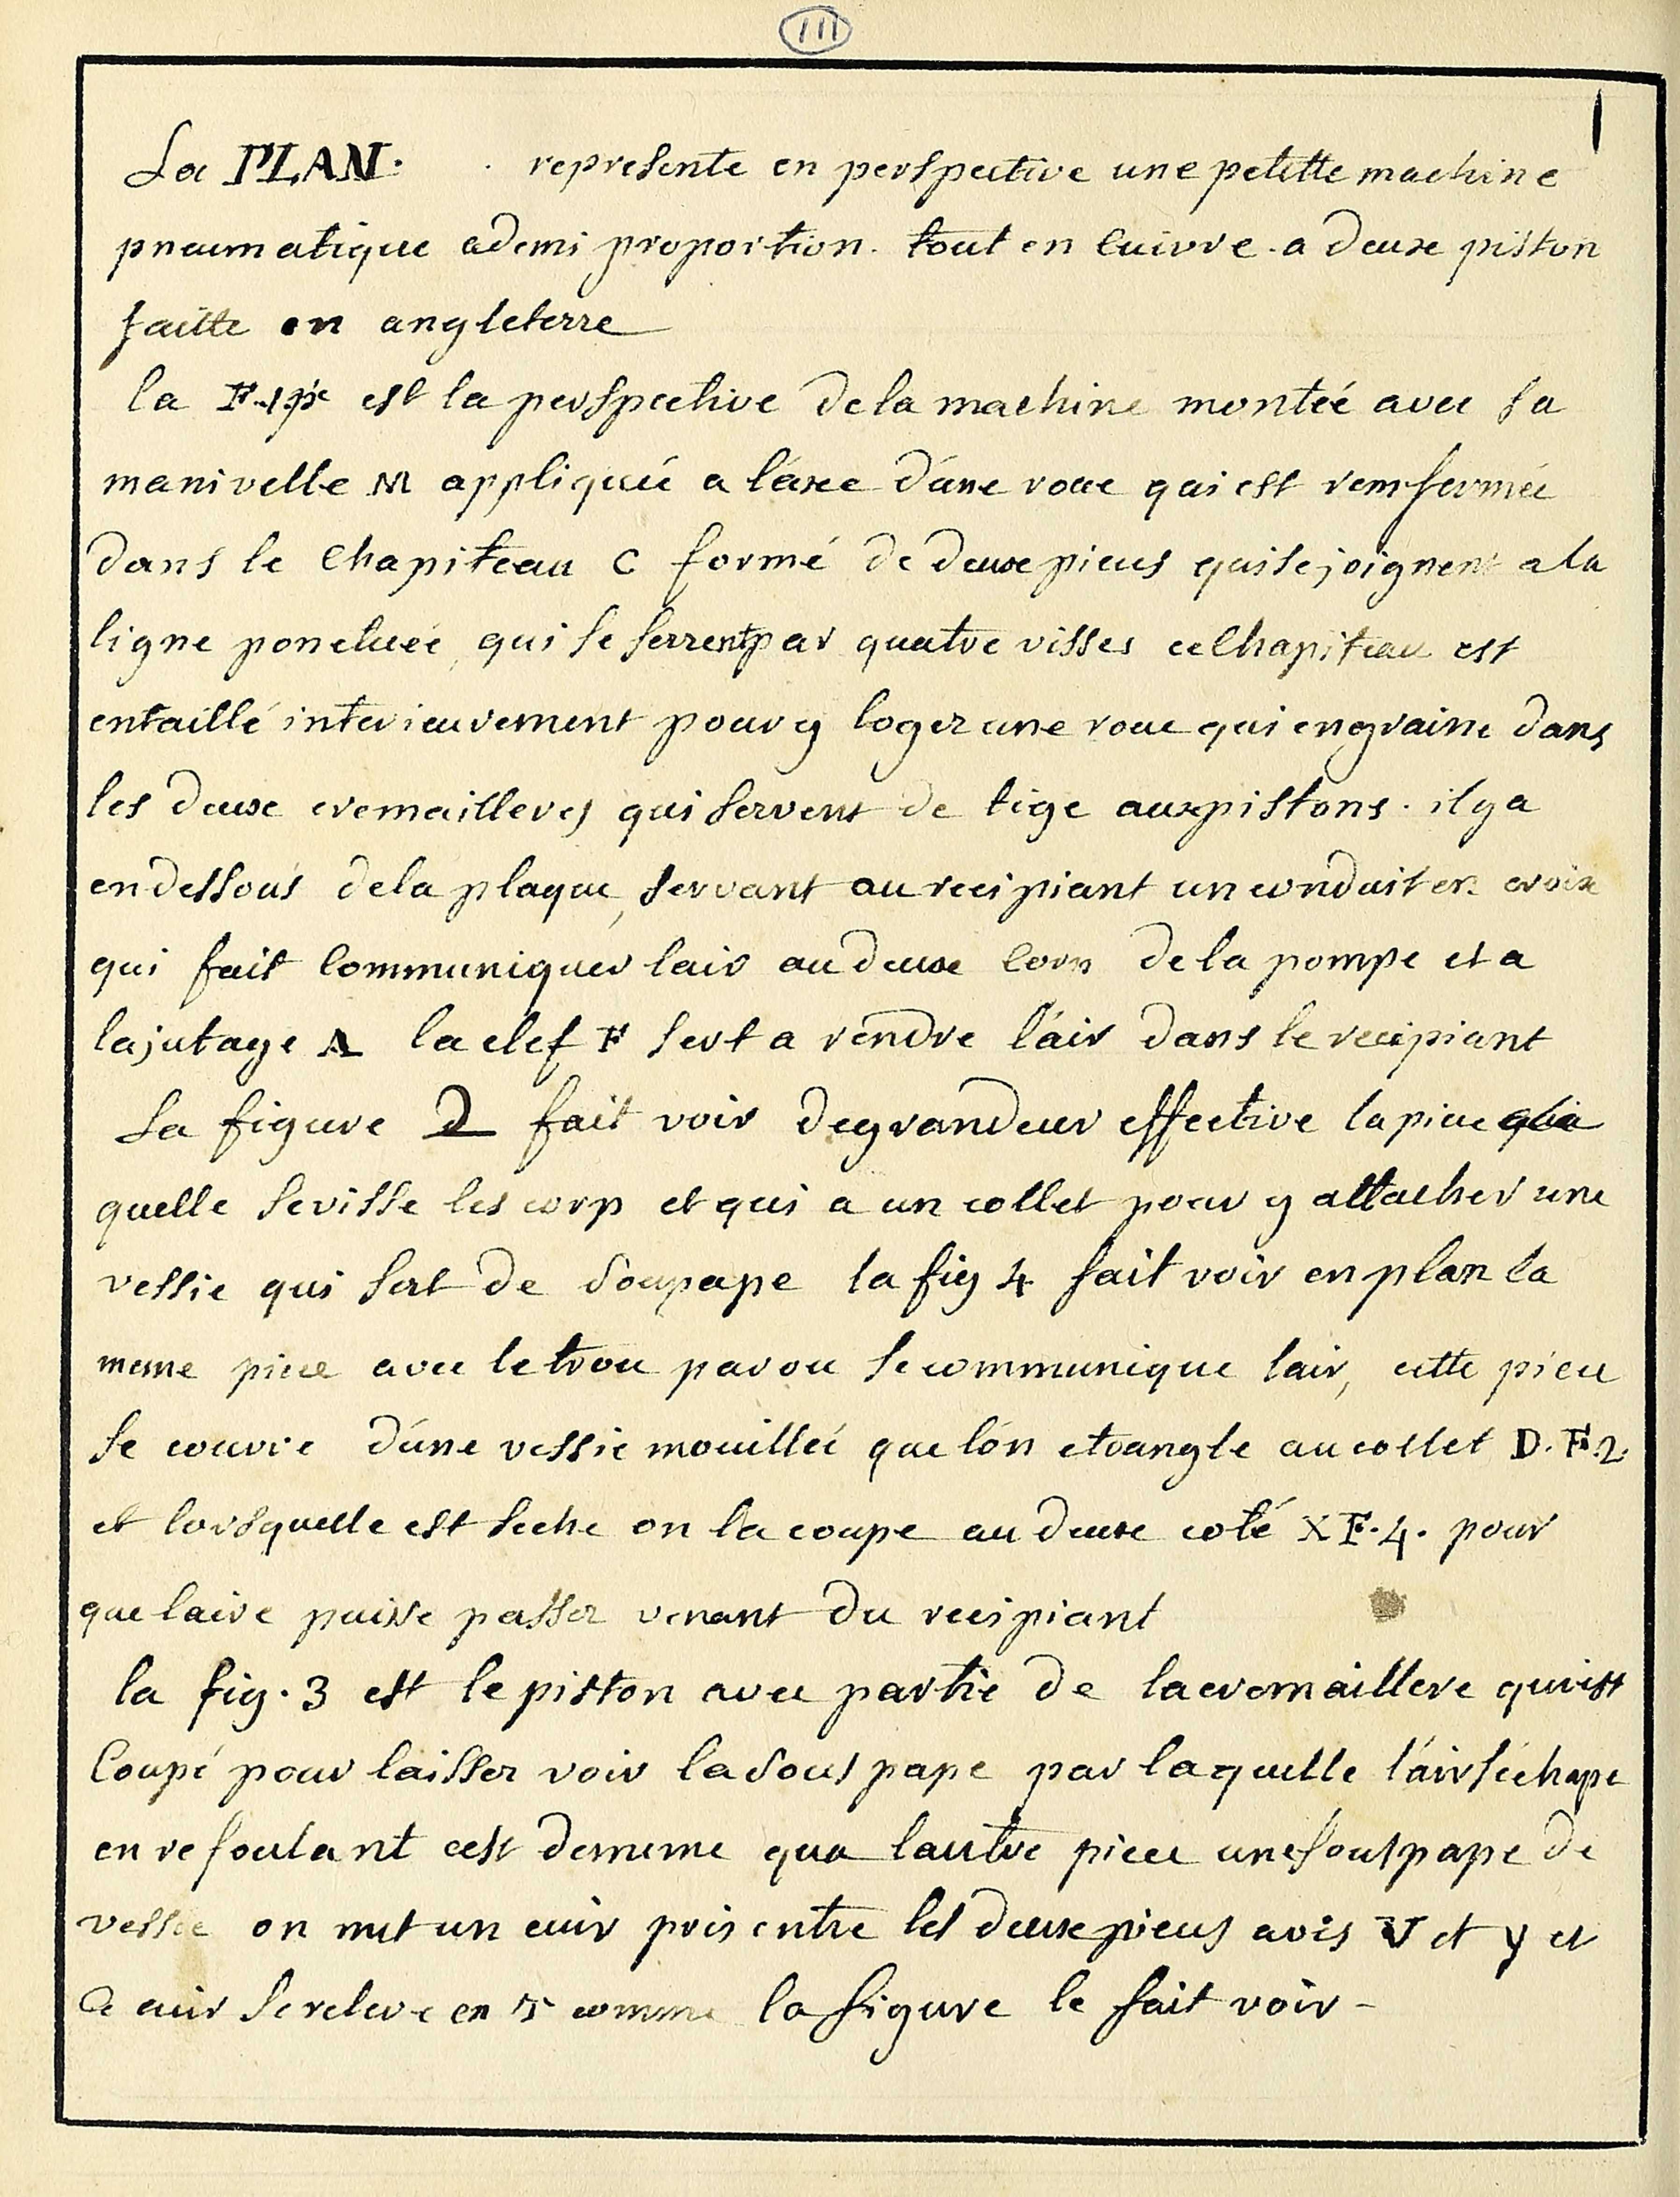 111
1
La PLAN. represente en perspective une petitte machine
pneumatique a demi proportion. tout en cuivre. a deuxe piston
faitte en angleterre
la F. 1re est la perspective de la machine montéé avec sa
manivelle M appliquéé a l'axee d'une roue qui est remfermée
dans le Chapiteau C formé de deuxe pieces qui se joignent a la
ligne ponctuéé, qui se serrent par quatre visses ce Chapiteau est
entaillé interieurement pour y loger une roue qui engraine dans
les deuxe cremailleres qui servent de tige aux pistons. il y a
en dessous de la plaque, servant au recipiant un conduit en croix
qui fait Communiquer lair au deuxe Corp de la pompe et a
lajutage A la clef F sert a rendre l'air dans le recipiant
La figure D fait voir de grandeur effective la piece
quelle se visse les corp et qui a un collet pour y attacher une
vessie qui sert de Soupape la fig 4 fait voir en plan la
meme piece avec le trou par ou se communique lair, cette piece
se couvre d'une vessie mouilléé que l'on etrangle au collet D. F. 2.
et lorsquelle est seche on la coupe au deuxe coté X F. 4. pour
que laire puisse passer venant du recipiant
la fig. 3 est le piston avec partie de la cremaillere qui est
Coupé pour laisser voir la Sous pape par laquelle l'air s'échape
en refoulant cest de meme qua lautre piece une souspape de
vessie on met un cuir pris entre les deuxe pieces a vis V et y et
Ce cuir se releve en T comme la figure le fait voir -